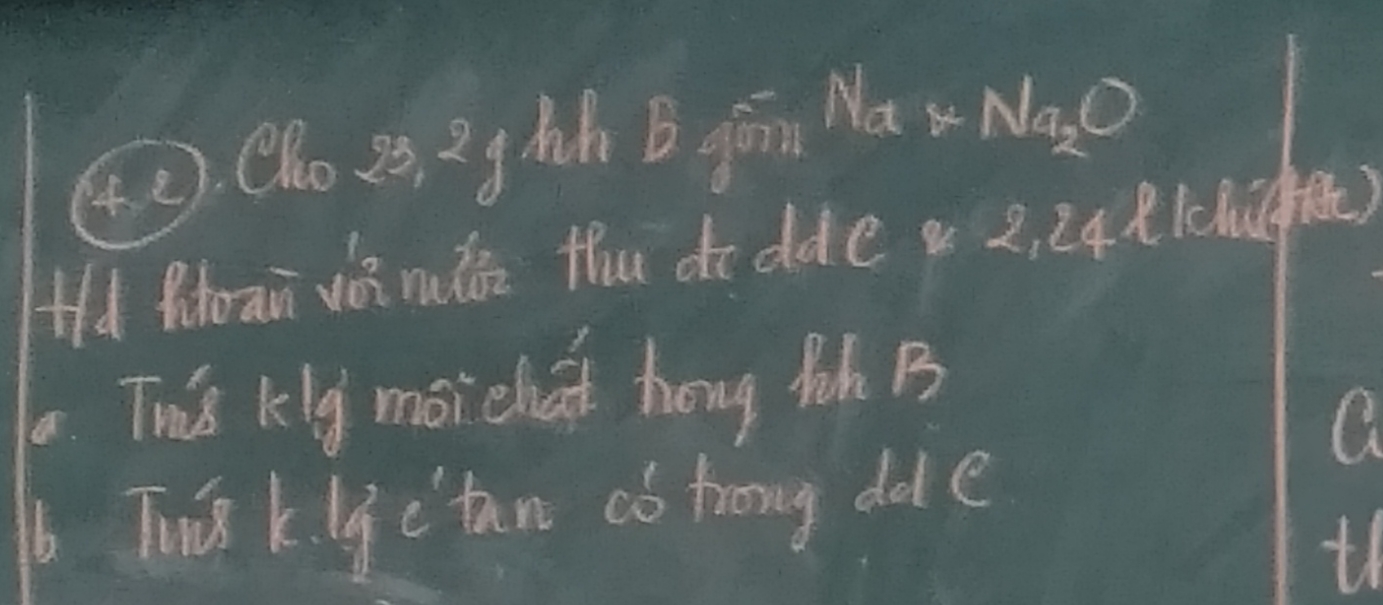 4.2. Cho 23,2g hh B gồm Na & Na₂O
t/d htoàn với nước thu đc dd C & 2,24 l khí (đktc)
a Tính klg mỗi chất trong hh B
b Tính k.lg c' tan có trong dd C